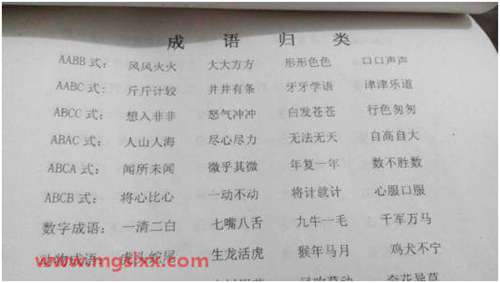 成 语 归 类
AABB 式: 风风火火 大大方方 形形色色 口口声声
AABC 式: 斤斤计较 井井有条 牙牙学语 津津乐道
ABCC 式: 想入非非 怒气冲冲 白发苍苍 行色匆匆
ABAC 式: 人山人海 尽心尽力 无法无天 自高自大
ABCA 式: 闻所未闻 微乎其微 年复一年 数不胜数
ABCB 式: 将心比心 一动不动 将计就计 心服口服
数字成语: 一清二白 七嘴八舌 九牛一毛 千军万马
动物成语: 虎头蛇尾 生龙活虎 猴年马月 鸡犬不宁
www.mgslxx.com